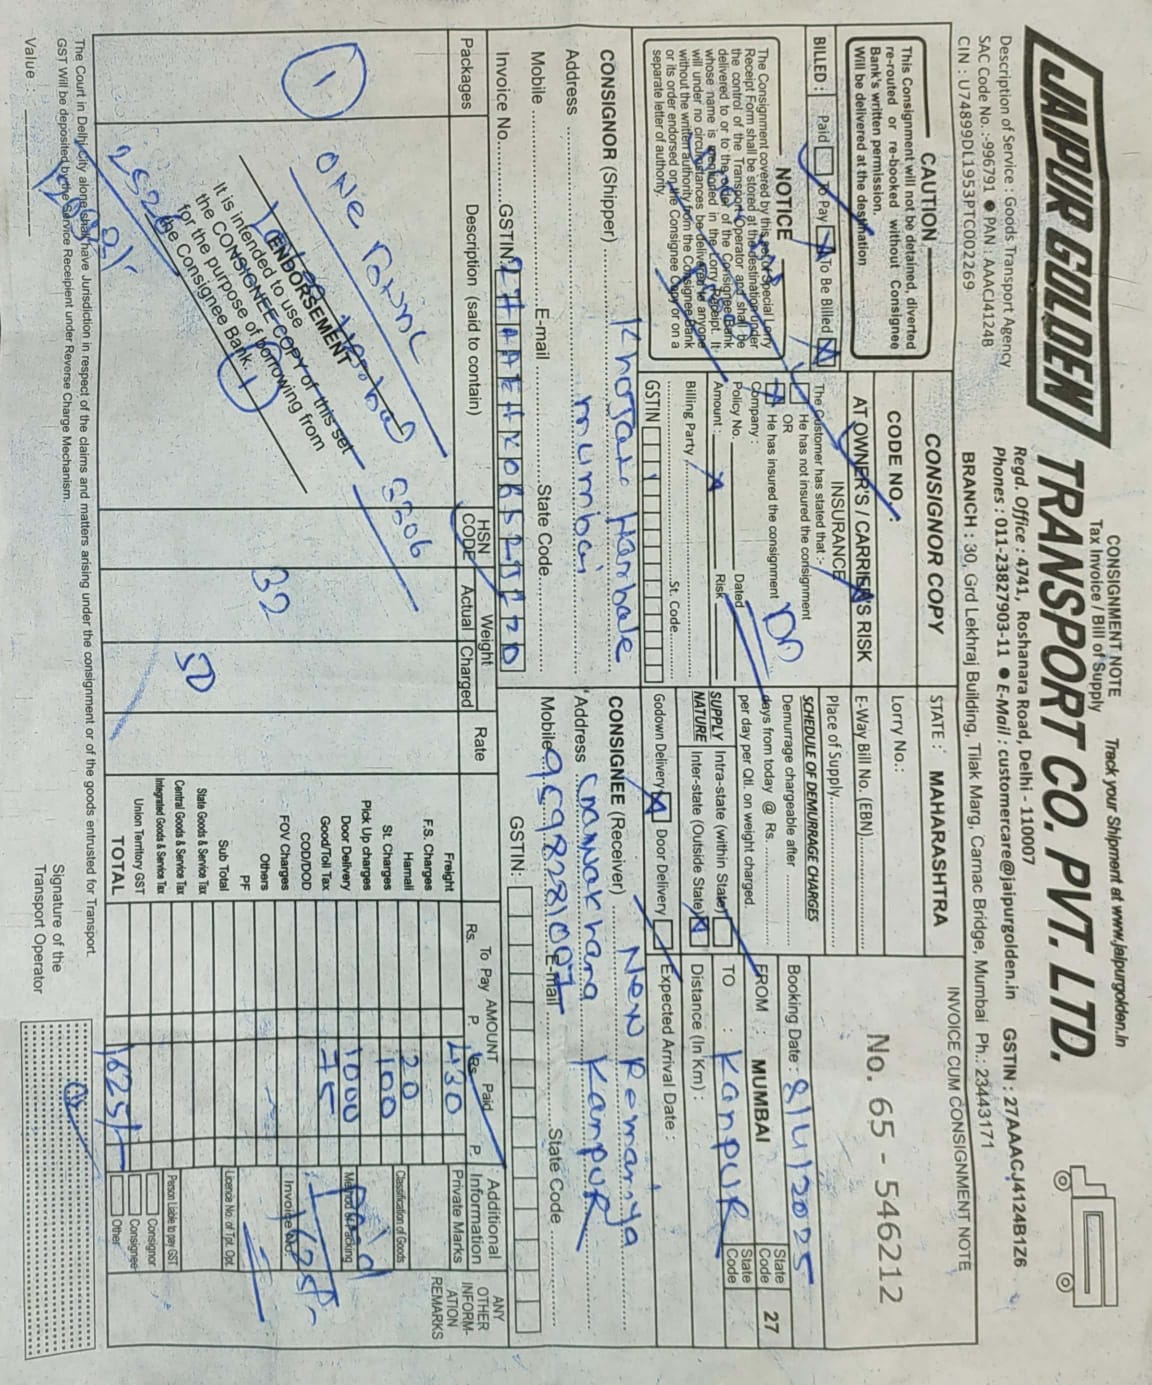 CONSIGNMENT NOTE
Tax Invoice / Bill of Supply
Track your Shipment at www.jaipurgolden.in
JAIPUR GOLDEN TRANSPORT CO. PVT. LTD.
Regd. Office : 4741, Roshanara Road, Delhi - 110007
Phones : 011-23827903-11 ● E-Mail : customercare@jaipurgolden.in GSTIN : 27AAACJ4124B1Z6
Description of Service : Goods Transport Agency
SAC Code No. :-996791 ● PAN : AAACJ4124B
CIN : U74899DL1953PTC002269
BRANCH : 30, Grd Lekhraj Building, Tilak Marg, Carnac Bridge, Mumbai Ph.: 23443171
CAUTION
This Consignment will not be detained, diverted
re-routed or re-booked without Consignee
Bank's written permission.
Will be delivered at the destination
CONSIGNOR COPY
STATE : MAHARASHTRA
INVOICE CUM CONSIGNMENT NOTE
CODE NO.
Lorry No.:
No. 65 - 546212
AT OWNER'S / CARRIER'S RISK
E-Way Bill No. (EBN)
BILLED : Paid To Pay To Be Billed
INSURANCE
The Customer has stated that :-
He has not insured the consignment
OR
He has insured the consignment
Company
Policy No. Dated
Amount : Risk
Billing Party
St. Code
GSTIN
Place of Supply
SCHEDULE OF DEMURRAGE CHARGES
Demurrage chargeable after
days from today @ Rs.
per day per Qtl. on weight charged.
Booking Date : 8/4/2025
FROM : MUMBAI
State Code 27
TO : KANPUR
State Code
NOTICE
The Consignment covered by this set of Special Lorry
Receipt Form shall be stored at the destination under
the control of the Transport Operator and shall be
delivered to or to the order of the Consignee Bank
whose name is mentioned in the Lorry Receipt. It
will under no circumstances be delivered to anyone
without the written authority from the Consignee Bank
or its order endorsed on the Consignee Copy or on a
separate letter of authority.
SUPPLY NATURE
Intra-state (within State)
Inter-state (Outside State)
Distance (In Km) :
Godown Delivery Door Delivery
Expected Arrival Date :
CONSIGNOR (Shipper) Khojati Harbale
Address mumbai
Mobile E-mail State Code
Invoice No. GSTIN
CONSIGNEE (Receiver) New Remanya
Address Kanpur
Mobile E-mail State Code
GSTIN:
Packages
Description (said to contain)
HSN CODE
Weight
Actual Charged
Rate
AMOUNT
To Pay Paid
Rs. P. Rs. P.
Additional Information
Private Marks
ANY OTHER INFORM-ATION REMARKS
1
ONE
3306
32
50
ENDORSEMENT
It is intended to use
the CONSIGNEE COPY of this set
for the purpose of borrowing from
the Consignee Bank.
Freight 430
F.S. Charges
Hamali 20
St. Charges 100
Pick Up charges
Door Delivery 1000
Good/Toll Tax 75
COD/DOD
FOV Charges
Others
PF
Sub Total
State Goods & Service Tax
Central Goods & Service Tax
Integrated Goods & Service Tax
Union Territory GST
TOTAL 1625/-
Classification of Goods
Method of Packing
Paid
Invoice No.
1625/-
Licence No. of Tpt. Opt.
Person Liable to pay GST
Consignor
Consignee
Other
The Court in Delhi City alone shall have Jurisdiction in respect of the claims and matters arising under the consignment or of the goods entrusted for Transport.
GST Will be deposited by the Service Recipient under Reverse Charge Mechanism.
Value :
Signature of the
Transport Operator